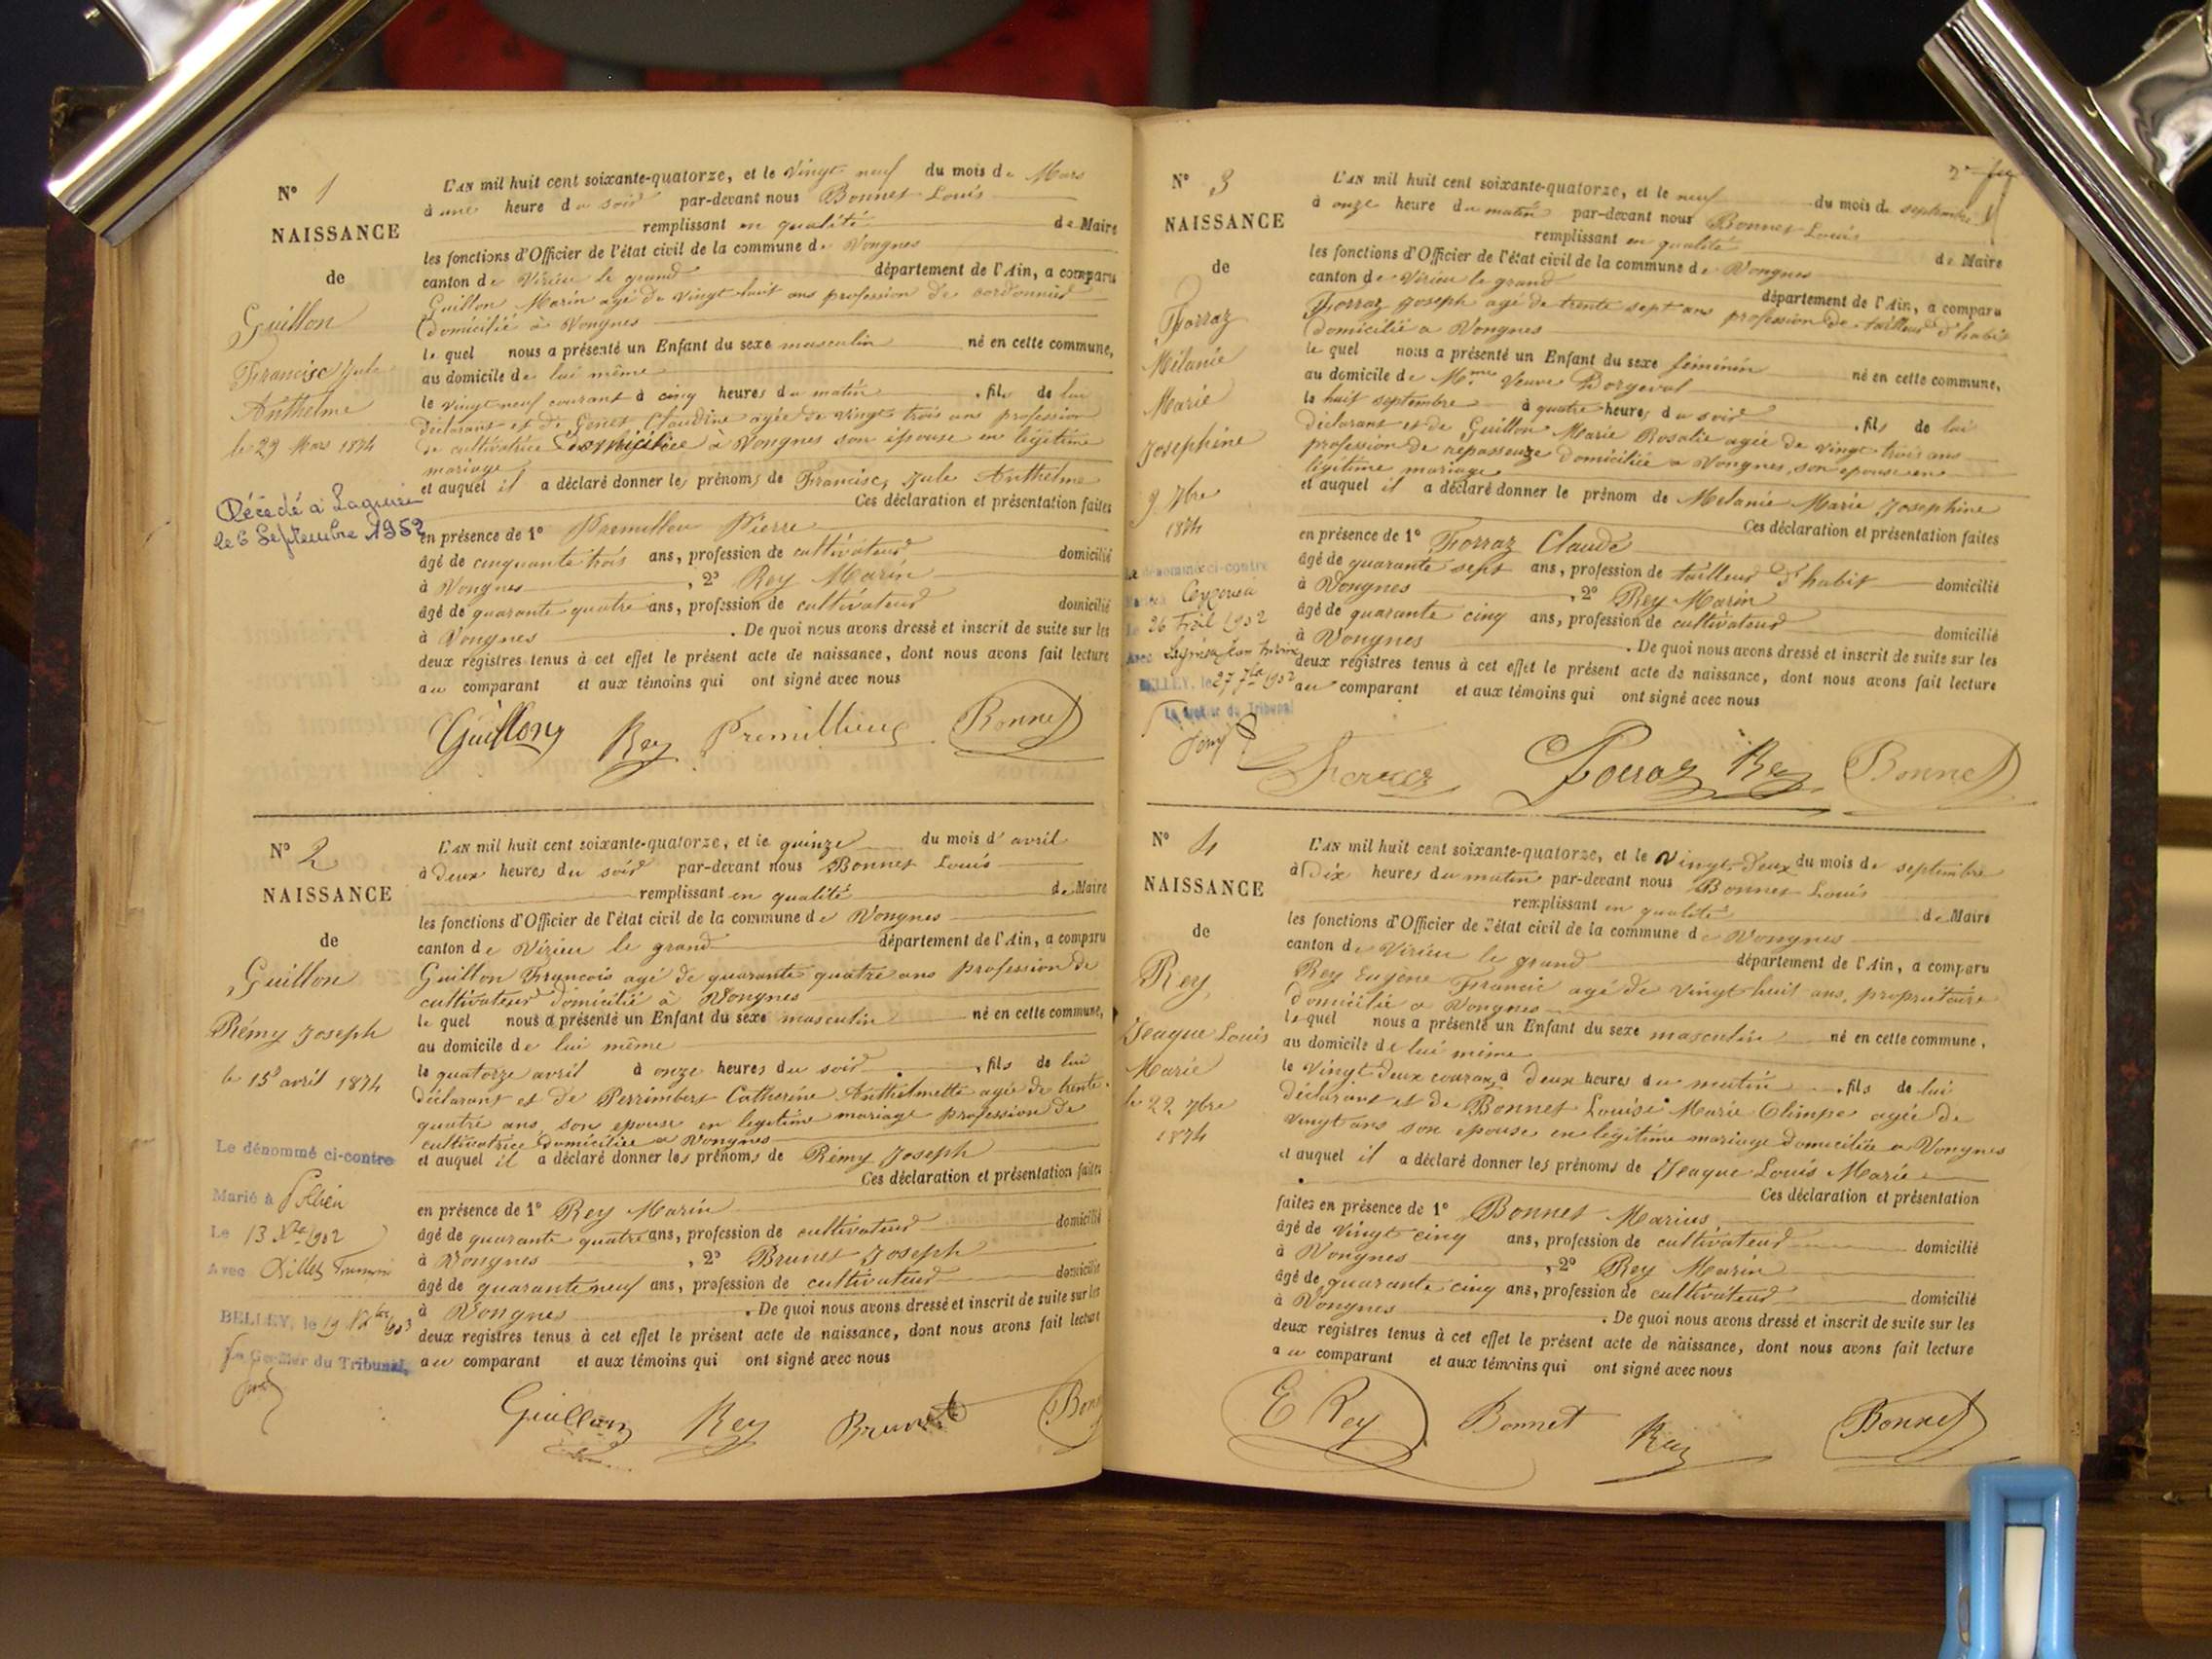 N° 1
NAISSANCE
de
Guillon
Francisc Jule
Anthelme
le 29 Mars 1874
Décédé à
le 6 Septembre 1952
L'AN mil huit cent soixante-quatorze, et le vingt neuf du mois de Mars
à une heure du soir par-devant nous Bonnet Louis
remplissant en qualité de Maire
les fonctions d'Officier de l'état civil de la commune de Vongnes
canton de Virieu le grand département de l'Ain, a comparu
Guillon Marin agé de vingt huit ans profession de cordonnier
domicilié à Vongnes
lequel nous a présenté un Enfant du sexe masculin né en cette commune,
au domicile de lui même
le vingt neuf courant à cinq heures du matin, fils de lui
déclarant et de Genet Claudine agée de vingt trois ans profession
de cultivatrice domiciliée à Vongnes son épouse en légitime
mariage
et auquel il a déclaré donner les prénoms de Francisc, Jule Anthelme
Ces déclaration et présentation faites
en présence de 1° Premillieu Pierre
âgé de cinquante trois ans, profession de cultivateur domicilié
à Vongnes, 2° Rey Marin
âgé de quarante quatre ans, profession de cultivateur domicilié
à Vongnes. De quoi nous avons dressé et inscrit de suite sur les
deux registres tenus à cet effet le présent acte de naissance, dont nous avons fait lecture
au comparant et aux témoins qui ont signé avec nous
Guillon Rey Premillieu Bonnet
N° 2
NAISSANCE
de
Guillon
Rémy Joseph
le 15 avril 1874
Le dénommé ci-contre
Marié à Pollieu
Le 13 1902
Avec
BELLEY, le 19 1903
Le Greffier du Tribunal,
L'AN mil huit cent soixante-quatorze, et le quinze du mois d'avril
à deux heures du soir par-devant nous Bonnet Louis
remplissant en qualité de Maire
les fonctions d'Officier de l'état civil de la commune de Vongnes
canton de Virieu le grand département de l'Ain, a comparu
Guillon Francois agé de quarante quatre ans profession de
cultivateur domicilié à Vongnes
lequel nous a présenté un Enfant du sexe masculin né en cette commune,
au domicile de lui même
le quatorze avril à onze heures du soir, fils de lui
déclarant et de Perrimbert Catherine Anthelmette agée de trente
quatre ans, son epouse en legitime mariage profession de
cultivatrice domiciliée a Vongnes
et auquel il a déclaré donner les prénoms de Rémy Joseph
Ces déclaration et présentation faites
en présence de 1° Rey Marin
âgé de quarante quatre ans, profession de cultivateur domicilié
à Vongnes, 2° Brunet Joseph
âgé de quarante neuf ans, profession de cultivateur domicilié
à Vongnes. De quoi nous avons dressé et inscrit de suite sur les
deux registres tenus à cet effet le présent acte de naissance, dont nous avons fait lecture
au comparant et aux témoins qui ont signé avec nous
Guillon Rey Brunet Bonn
N° 3
NAISSANCE
de
Forraz
Mélanie
Marie
Josephine
9 7bre
1874
Le dénommé ci-contre
Marié à Ceyzérieu
Le 26 1902
Avec
BELLEY, le 27 7bre 1902
Le Greffier du Tribunal
L'AN mil huit cent soixante-quatorze, et le neuf du mois de septembre
à onze heure du matin par-devant nous Bonnet Louis
remplissant en qualité de Maire
les fonctions d'Officier de l'état civil de la commune de Vongnes
canton de Virieu le grand département de l'Ain, a comparu
Forraz Joseph agé de trente sept ans profession de tailleur d'habit
domicilié a Vongnes
lequel nous a présenté un Enfant du sexe féminin né en cette commune,
au domicile de Mme Veuve Dorgeval
le huit septembre à quatre heures du soir, fils de lui
déclarant et de Guillon Marie Rosalie agée de vingt trois ans
profession de repasseuze domiciliée a Vongnes, son epouse en
légitime mariage
et auquel il a déclaré donner le prénom de Melanie Marie Josephine
Ces déclaration et présentation faites
en présence de 1° Forraz Claude
âgé de quarante sept ans, profession de tailleur d'habit domicilié
à Vongnes, 2° Rey Marin
âgé de quarante cinq ans, profession de cultivateur domicilié
à Vongnes. De quoi nous avons dressé et inscrit de suite sur les
deux registres tenus à cet effet le présent acte de naissance, dont nous avons fait lecture
au comparant et aux témoins qui ont signé avec nous
Forraz Forraz Rey Bonnet
N° 4
NAISSANCE
de
Rey
Jeaque Louis
Marie
le 22 7bre
1874
L'AN mil huit cent soixante-quatorze, et le vingt deux du mois de septembre
à Dix heures du matin par-devant nous Bonnet Louis
remplissant en qualité de Maire
les fonctions d'Officier de l'état civil de la commune de Vongnes
canton de Virieu le grand département de l'Ain, a comparu
Rey Eugène Francic agé de vingt huit ans, propriétaire
domicilié a Vongnes
lequel nous a présenté un Enfant du sexe masculin né en cette commune,
au domicile de lui mime
le vingt deux courant à deux heures du matin, fils de lui
déclarant et de Bonnet Louise Marie Olimpe agée de
vingt ans son epouse en légitime mariage domiciliée a Vongnes
et auquel il a déclaré donner les prénoms de Jeaque Louis Marie
Ces déclaration et présentation
faites en présence de 1° Bonnet Marius
âgé de vingt cinq ans, profession de cultivateur domicilié
à Vongnes, 2° Rey Marin
âgé de quarante cinq ans, profession de cultivateur domicilié
à Vongnes. De quoi nous avons dressé et inscrit de suite sur les
deux registres tenus à cet effet le présent acte de naissance, dont nous avons fait lecture
au comparant et aux témoins qui ont signé avec nous
E Rey Bonnet Rey Bonnet